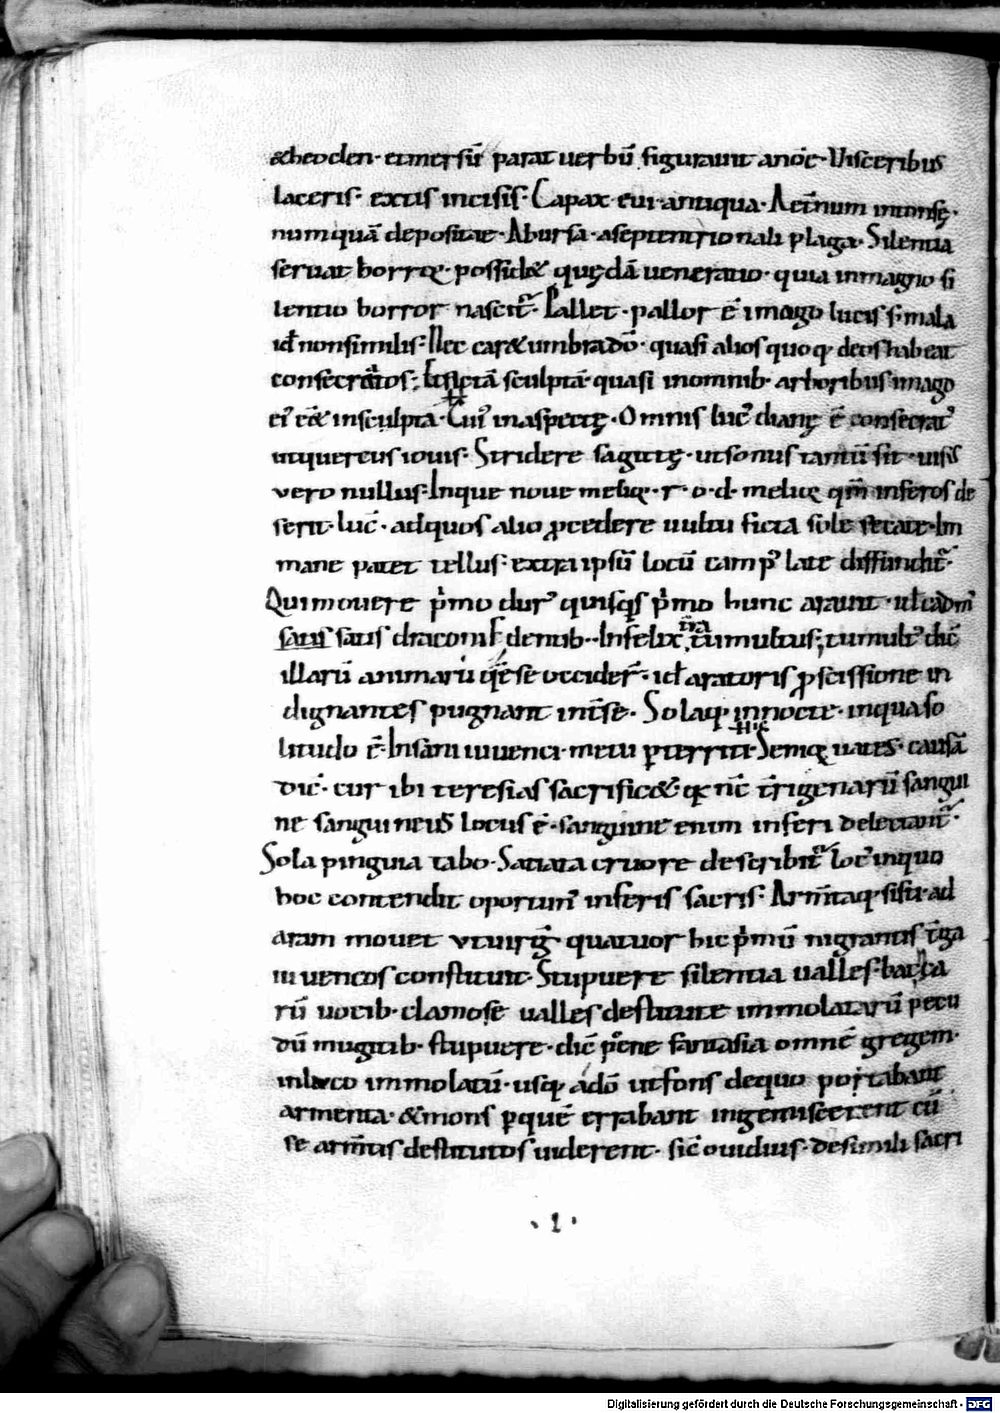 &heoclen· etmersũ parat uerbũ figurauit anoc̄· Visceribus
laceris· extis incisis· Capax eui antiqua· Aet̄num intonsę·
numquã depositae· Abursa· aseptentrionali plaga· Silentia
seruat horror· possid& quędã ueneratio· quia inmagno si
lentio horror nascit᷒· Pallet· pallor ē imago lucis s; mala
id nonsimilis· Nec car& umbra dō· quasi alios quoq deos habeat
consecratos· sculptã· quasi inomnib· arboribus imago
ei᾽ eēt insculpta· Cui᾽ inaspectę· Omnis luc᾽ dianę ē consecrat᾽
utquercus iouis· Stridere sagittę· utsonus tantũ sit· uisus
vero nullus· Inque noue messę· r· o· d· messę qm̄ inferos de
serit· luc̄· adquos alio pcedere uultu ficta sole secate· Im
mane patet tellus· extra ipsũ locũ camp᾽ late diffundit᷒·
Qui mouere p̄mo dur᾽ quisq;s p̄mo hunc arauit· ul cadm᾽
satis satis draconis dentib·· Infelix tumultus; tumult᾽ dic̄
illarũ animarũ q̄ se occider̄· id aratoris pscissione in
dignantes pugnant int̄se· Solaq· innocte· inqua so
litudo ē· Insani iuuenci· metu pterriti· Semq uates· causã
dic̄· cur ibi teresias sacrific&· q nc̄ t̄rigenarũ sangui
ne sanguineus locus ē· sanguine enim inferi delectant᷒·
Sola pinguia tabo· Satiata cruore describit᷒ loc᾽ inquo
hoc contendit oportun᾽ inferis sacris· Arm̄taq· sisti· ad
aram mouet vtuirg̃· quatuor hic p̄mũ nigrantis t̄ga
iuuencos constituit· Stupuere silentia ualles· bacca
rũ uocib· clamose ualles destitute immolatarũ pecu
dũ mugitib· stupuere· dic̄ pene fantasia omnē gregem·
inloco immolatũ· usq adō ut fons dequo portabant
armenta· & mons pquē errabant ingemiscerent cũ
se arm̄tis destitutos uiderent· sic̄ ouidius· desimili sacri
· I ·
Digitalisierung gefördert durch die Deutsche Forschungsgemeinschaft · DFG